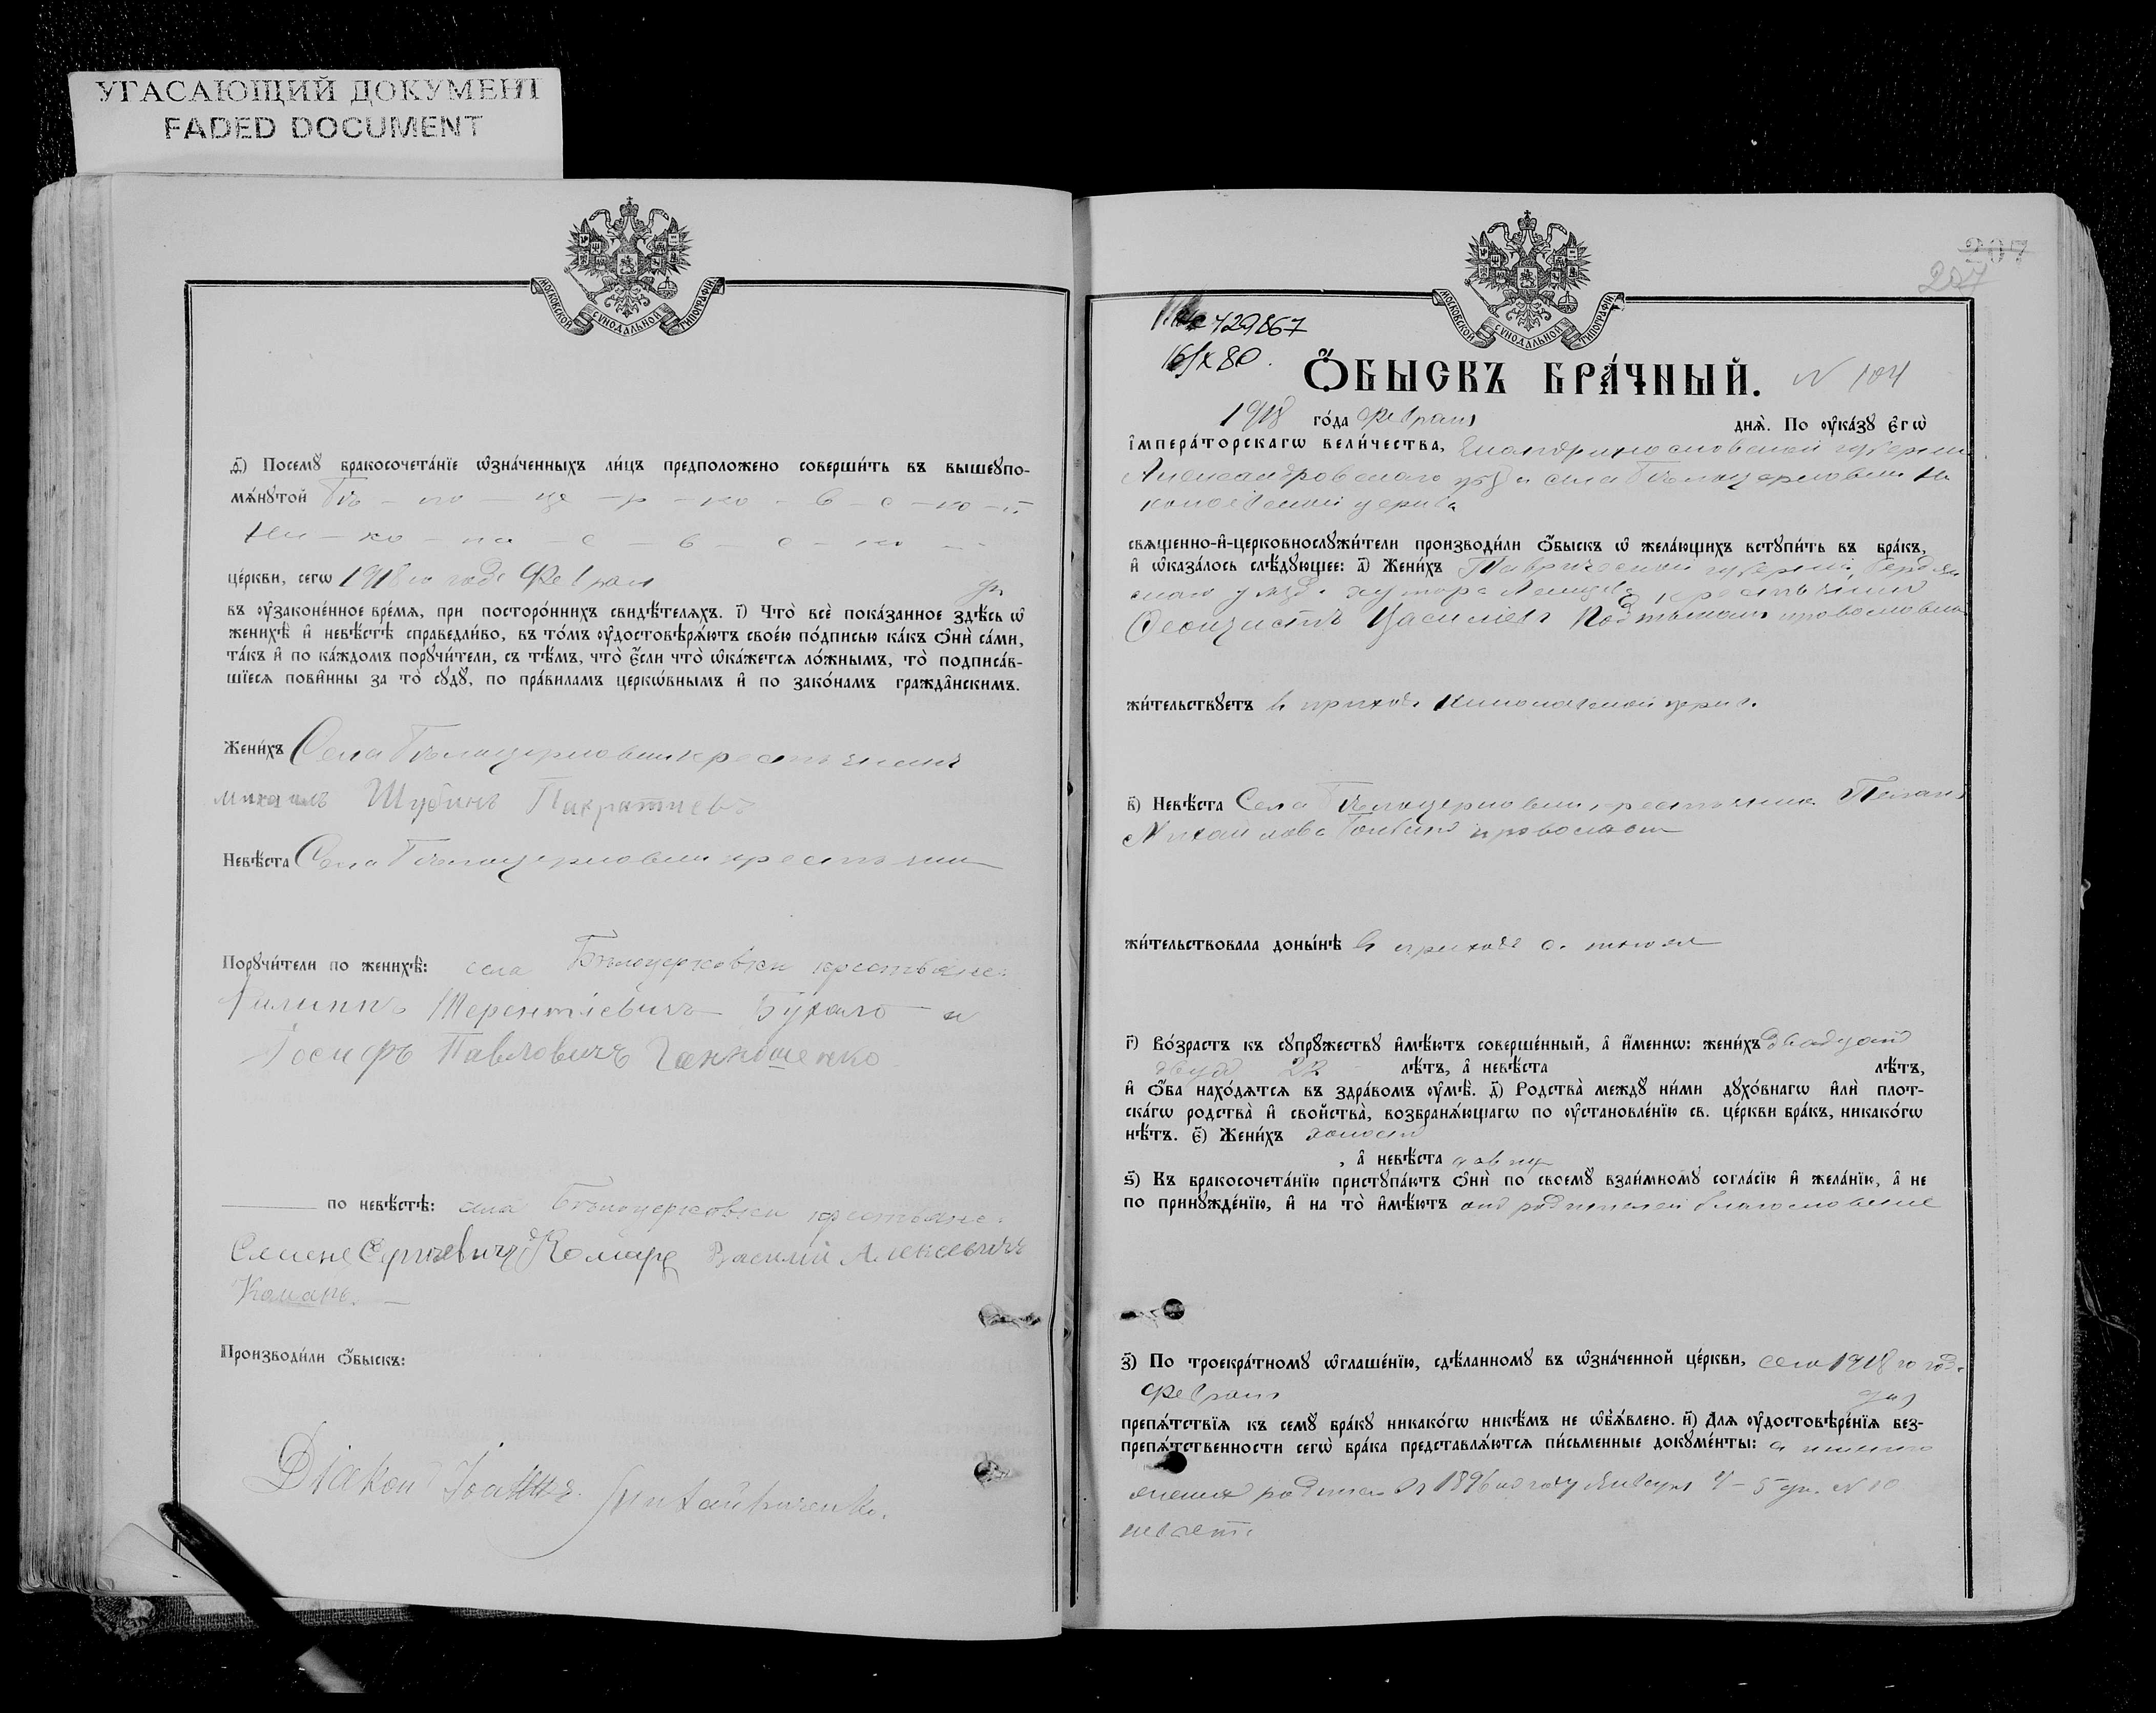 УГАСАЮЩИЙ ДОКУМЕНТ
FADED DOCUMENT
МОСКОВСКОЙ СѴНОДАЛЬНОЙ ТИПОГРАФІИ
д҃і) Посемꙋ бракосочета́нїе ѡ҆зна́ченныхъ ли́цъ предположено соверши́ть въ вышеꙋпо-
мѧ́нꙋтой Бѣ - ло - це - р - ко - в - с - ко - й
Ни - ко - ла - е - в - с - ко -
це́ркви, сегѡ 1918 го года Феврал
въ ᲂу҆законе́нное вре́мѧ, при посторо́ннихъ свидѣ́телѧхъ. і҃) Что̀ всѐ пока́занное здѣ́сь ѡ҆
женихѣ̀ и҆ невѣ́стѣ справедли́во, въ то́мъ ᲂу҆достовѣрѧ́ютъ свое́ю по́дписью ка́къ ѻ҆нѝ са́ми,
та́къ и҆ по ка́ждомъ порꙋчи́тели, съ тѣ́мъ, что̀ є҆́сли что̀ ѡ҆ка́жетсѧ ло́жнымъ, то̀ подписа́в-
шїесѧ пови́нны за то̀ сꙋдꙋ̀, по пра́виламъ церкѡ́внымъ и҆ по зако́намъ гражда́нскимъ.
Жени́хъ Села Бѣлоцерковки крестьянин
Михаилъ Шубинъ Панкратиевъ
Невѣ́ста Села Бѣлоцерковки крестьянин
Порꙋчи́тели по женихѣ̀: села Бѣлоцерковки крестьяне:
Филиппъ Терентіевичъ Бухало и
Іосифъ Павловичъ
по невѣ́стѣ: села Бѣлоцерковки крестьяне:
Семенъ Сергѣевичъ Комаръ Василій Алексѣевичъ
Комаръ.
Производи́ли ѻ҆́быскъ:
Діаконъ Іоаннъ
207
207
429867
16/X 80.
МОСКОВСКОЙ СѴНОДАЛЬНОЙ ТИПОГРАФІИ
Ѻ҆́БЫСКЪ БРА́ЧНЫЙ. N 104
1918 го́да Февраля днѧ̀. По ᲂу҆ка́зꙋ є҆гѡ̀
і҆мпера́торскагѡ вели́чества, Екатеринославской губерніи
Александровскаго уѣзда села Бѣлоцерковки Ни
колаевской церкви
свѧще́нно-и҆-церковнослꙋжи́тели производи́ли ѻ҆́быскъ ѡ҆ жела́ющихъ встꙋпи́ть въ бра́къ,
и҆ ѡ҆каза́лось слѣ́дꙋющее: а҃) Жени́хъ Таврической губерніи, Бердян
скаго уѣзда хутора крестьянин
Феоктистъ Василіевъ православна
жи́тельствꙋетъ в приходѣ Николаевской церкви
в҃) Невѣ́ста Села Бѣлоцерковки крестьянка Пелагія
Михайлова православн
жи́тельствовала доны́нѣ в приходѣ
г҃) Во́зрастъ къ сꙋпрꙋ́жествꙋ и҆мѣ́ютъ соверше́нный, а҆ и҆́менно: жени́хъ двадцати
двухъ 22 лѣ́тъ, а҆ невѣ́ста лѣ́тъ,
и҆ ѻ҆́ба нахо́дѧтсѧ въ здра́вомъ ᲂу҆мѣ̀. д҃) Родства̀ междꙋ ни́ми дꙋхо́внагѡ и҆лѝ плот-
ска́гѡ родства̀ и҆ сво́йства̀, возбранѧ́ющагѡ по ᲂу҆становле́нїю св. це́ркви бра́къ, никако́гѡ
нѣ́тъ. є҃) Жени́хъ холостъ
, а҆ невѣ́ста дѣвица
ѕ҃) Къ бракосочета́нїю пристꙋпа́ютъ ѻ҆нѝ по своемꙋ̀ взаи́мномꙋ согла́сїю и҆ жела́нїю, а҆ не
по принꙋжде́нїю, и҆ на то̀ и҆мѣ́ютъ отъ родителей благословеніе
з҃) По троекра́тномꙋ ѡ҆глаше́нїю, сдѣ́ланномꙋ въ ѡ҆зна́ченной це́ркви, сего 1918 го года
Февраля дня
препѧ́тствїѧ къ семꙋ̀ бра́кꙋ никако́гѡ никѣ́мъ не ѡ҆б̾ѧ́влено. и҃) Длѧ ᲂу҆достовѣре́нїѧ без-
препѧ́тственности сегѡ̀ бра́ка представлѧ́ютсѧ пи́сьменные докꙋме́нты: а именно
женихъ родился въ 1896 го году Января 4 - 5 дн. N 10
невѣста